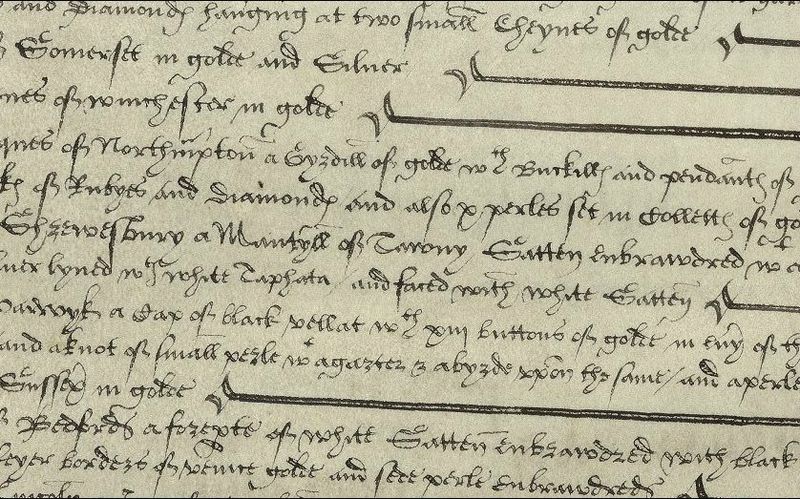 and Diamond hanging at two small Cheynes of golde
Somerset in golde and Silver
nes of winchester in golde
ques of Northmpton a Gyrdill of golde wth Buckill and pendanth of
of Rubyes and Diamond and also x perles set in Collett of go
Shrewesbury a Mantyll of Tawny Satten enbrawdred w a
lver lyned wt white Taphata / and faced with white Satten
warwyk a Cap of black vellat wth xiii buttons of golde in evy of th
and a knot of small perle wt a garter & a byrde vppon the same / and a perle
Sussex in golde
Bedford a forepte of white Satten enbrawdred with black
leyer borders of venice golde and sede perle enbrawdred